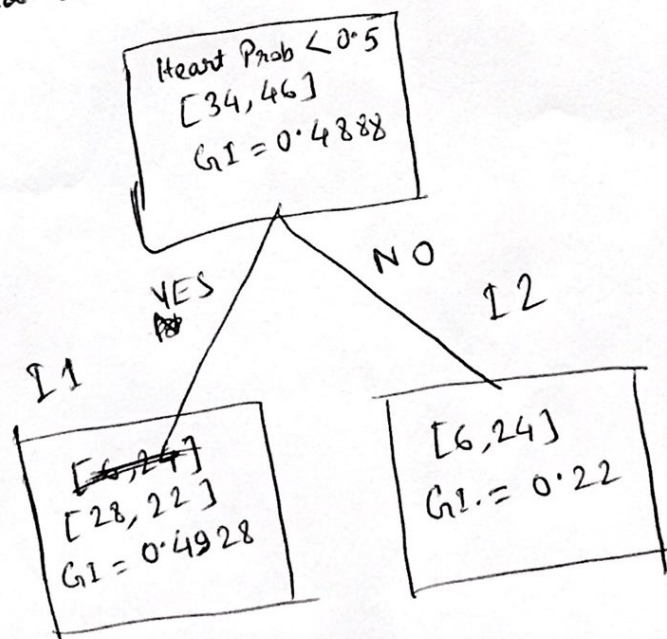 Heart Prob < 0.5
[34, 46]
GI = 0.4888
YES
NO
I1
I2
[6, 24]
[28, 22]
GI = 0.4928
[6, 24]
GI. = 0.22